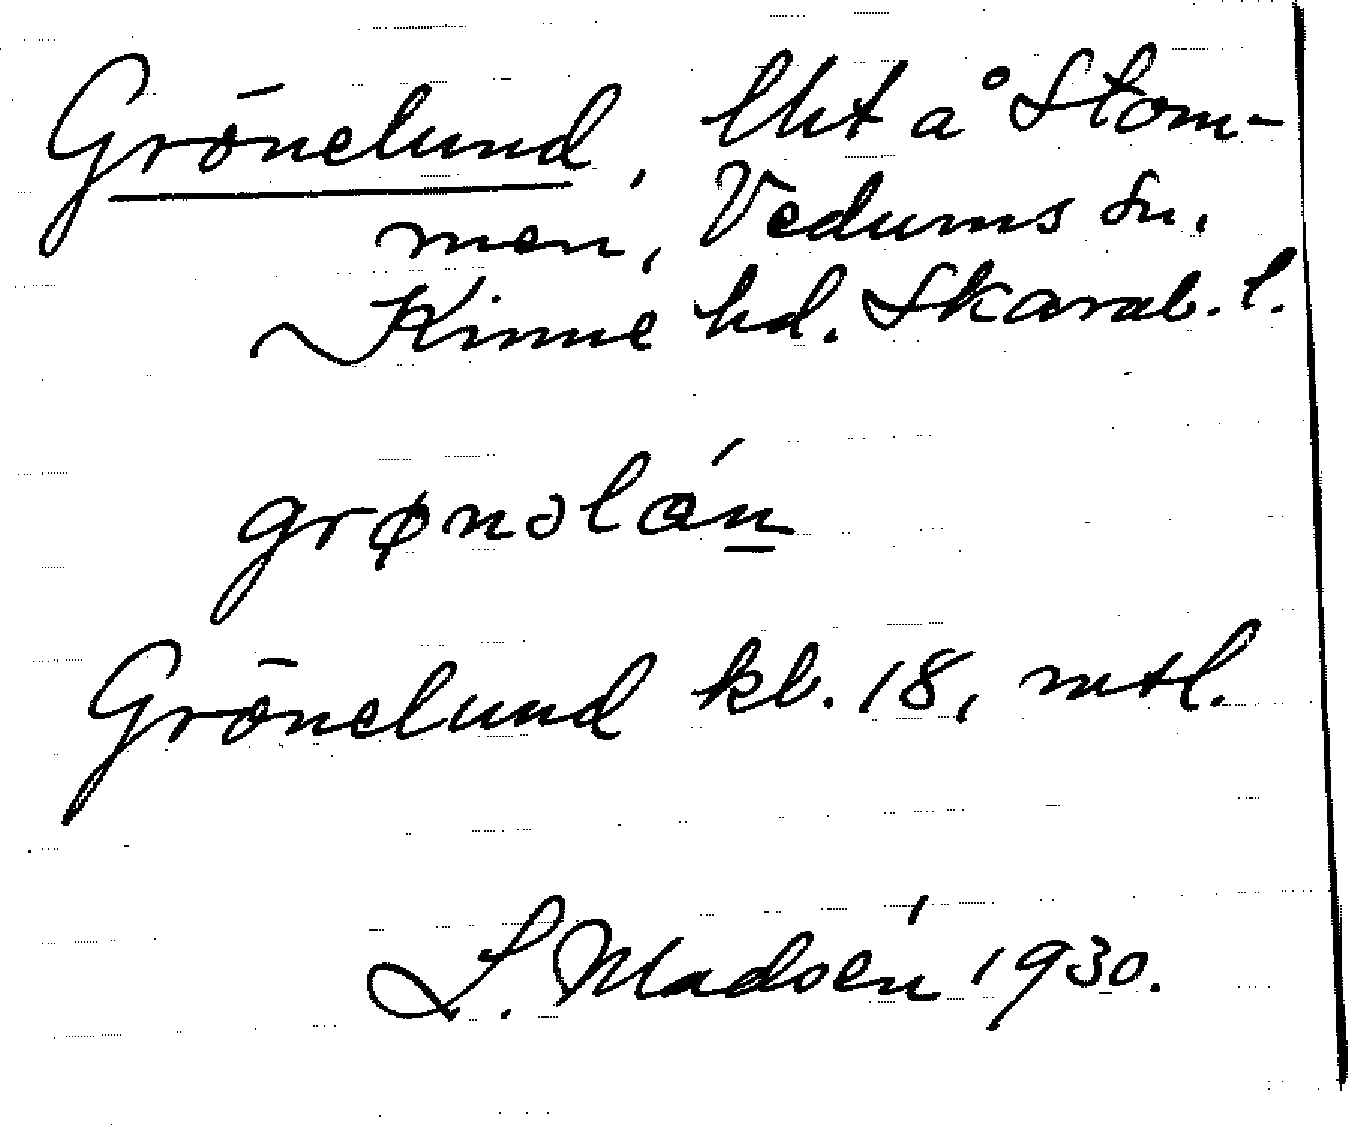 Grönelund, lht å Stom-
men, Vedums sn.
Kinne hd. Skarab. l.
grønəlán
Grönelund kl. 18, mtl.
L. Madsén 1930.